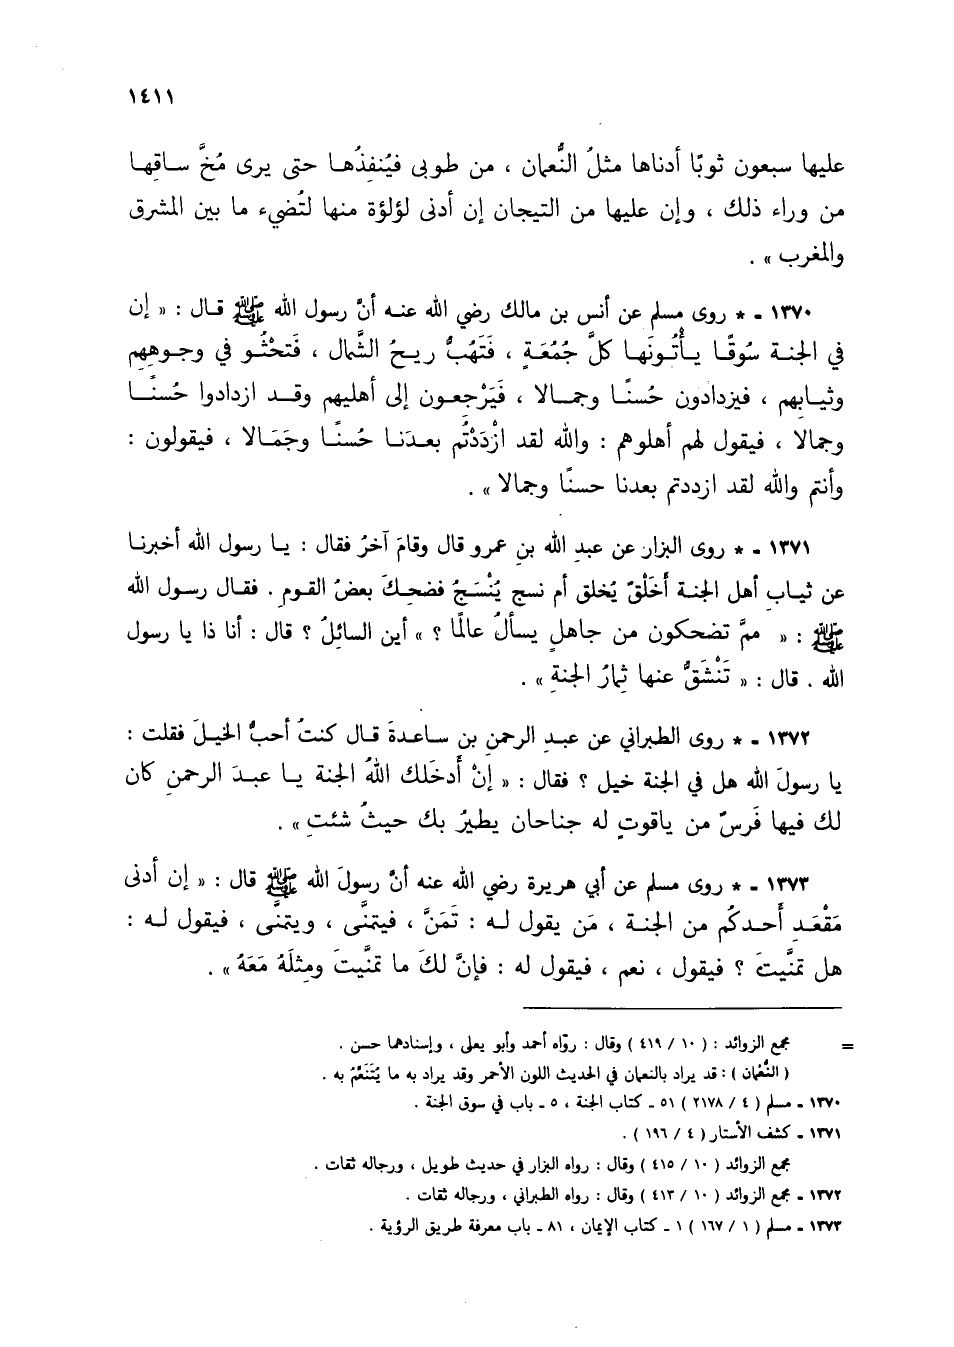 ١٤١١
عليها سبعون ثوبًا أدناها مثلُ النُّعمان ، من طوبى فيُنفِذُهـا حتى يرى مُخَّ ساقِها
من وراء ذلك ، وإن عليها من التيجان إن أدنى لؤلؤة منها لتُضيء ما بين المشرق
والمغرب » .
١٣٧٠ - * روى مسلم عن أنس بن مالك رضي الله عنه أنَّ رسول الله ﷺ قال : « إن
في الجنة سُوقًا يأتُونَها كلَّ جُمُعَةٍ ، فَتَهُبُّ ريحُ الشَّمال ، فَتَحْثُو في وجوهِهِم
وثيابِهم ، فيزدادون حُسنًا وجمالا ، فَيَرْجِعون إلى أهليهم وقد ازدادوا حُسنًا
وجمالا ، فيقول لهم أهلوهم : والله لقد ازْدَدْتُم بعدَنا حُسنًا وجَمَالا ، فيقولون :
وأنتم والله لقد ازددتم بعدنا حسنًا وجمالا » .
١٣٧١ - * روى البزار عن عبدِ الله بنِ عمرو قال وقامَ آخرُ فقال : يا رسول الله أخبرنا
عن ثيابِ أهل الجنة أَخَلْقٌ يُخلق أم نسج يُنْسَجُ فضحِكَ بعضُ القوم . فقال رسول الله
ﷺ : « ممَّ تضحكون من جاهلٍ يسألُ عالمًا ؟ » أين السائلُ ؟ قال : أنا ذا يا رسول
الله . قال : « تَنْشَقُّ عنها ثمارُ الجنةِ » .
١٣٧٢ - * روى الطبراني عن عبدِ الرحمنِ بن ساعدةَ قال كنتُ أحبُّ الخيلَ فقلت :
يا رسولَ الله هل في الجنة خيل ؟ فقال : « إنْ أدخَلك اللهُ الجنة يا عبدَ الرحمنِ كان
لك فيها فَرسٌ من ياقوتٍ له جناحان يطيرُ بك حيثُ شئتِ » .
١٣٧٣ - * روى مسلم عن أبي هريرة رضي الله عنه أنَّ رسولَ الله ﷺ قال : « إن أدنى
مَقْعَدِ أَحدكُم من الجنة ، مَن يقول له : تَمَنَّ ، فيتمنَّى ، ويتمنَّى ، فيقول له :
هل تمنَّيتَ ؟ فيقول ، نعم ، فيقول له : فإنَّ لكَ ما تمنَّيتَ ومِثلَهُ مَعَهُ » .
= مجمع الزوائد : ( ١٠ / ٤١٩ ) وقال : روّاه أحمد وأبو يعلى ، وإسنادهما حسن .
( النُّعْمان ) : قد يراد بالنعمان في الحديث اللون الأحمر وقد يراد به ما يُتَنَعَّمُ به .
١٣٧٠ - مسلم ( ٤ / ٢١٧٨ ) ٥١ - كتاب الجنة ، ٥ - باب في سوق الجنة .
١٣٧١ - كشف الأستار ( ٤ / ١٩٦ ) .
مجمع الزوائد ( ١٠ / ٤١٥ ) وقال : رواه البزار في حديث طويل ، ورجاله ثقات .
١٣٧٢ - مجمع الزوائد ( ١٠ / ٤١٣ ) وقال : رواه الطبراني ، ورجاله ثقات .
١٣٧٣ - مسلم ( ١ / ١٦٧ ) ١ - كتاب الإيمان ، ٨١ - باب معرفة طريق الرؤية .